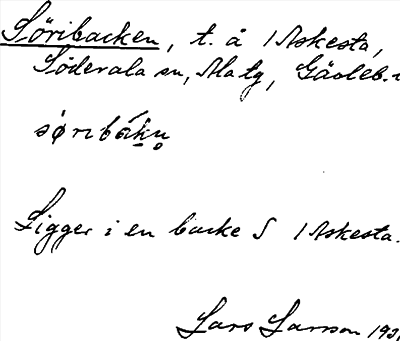 Söribacken, t. å 1 Askesta,
Söderala sn, Ala tg, Gävleb.
søribákn̥
Ligger i en backe S 1 Askesta.
Lars Larsson 193